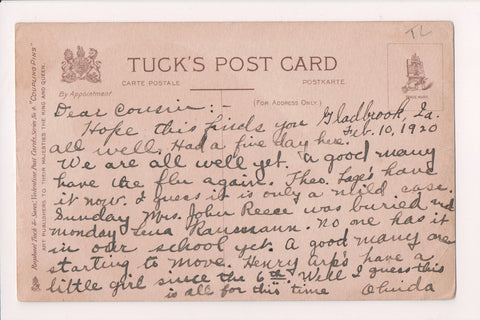 TL
TUCK'S POST CARD
CARTE-POSTALE
POSTKARTE.
By Appointment
(FOR ADDRESS ONLY.)
Raphael Tuck & Sons' Valentine Post Cards, Series No. 6 "COUPLING PINS"
ART PUBLISHERS TO THEIR MAJESTIES THE KING AND QUEEN.
Dear Cousin:-
Gladbrook, Ia.
Feb. 10, 1920
Hope this finds you
all well. Had a fine day here.
We are all well yet. a good many
have the flu again. Theo. Lage's have
it now. I guess it is only a mild case.
Sunday Mrs. John Reese was buried and
monday Lena Raumann. no one has it
in our school yet. A good many are
starting to move. Henry Arp's have a
little girl since the 6th. Well I guess this
is all for this time
Olinda